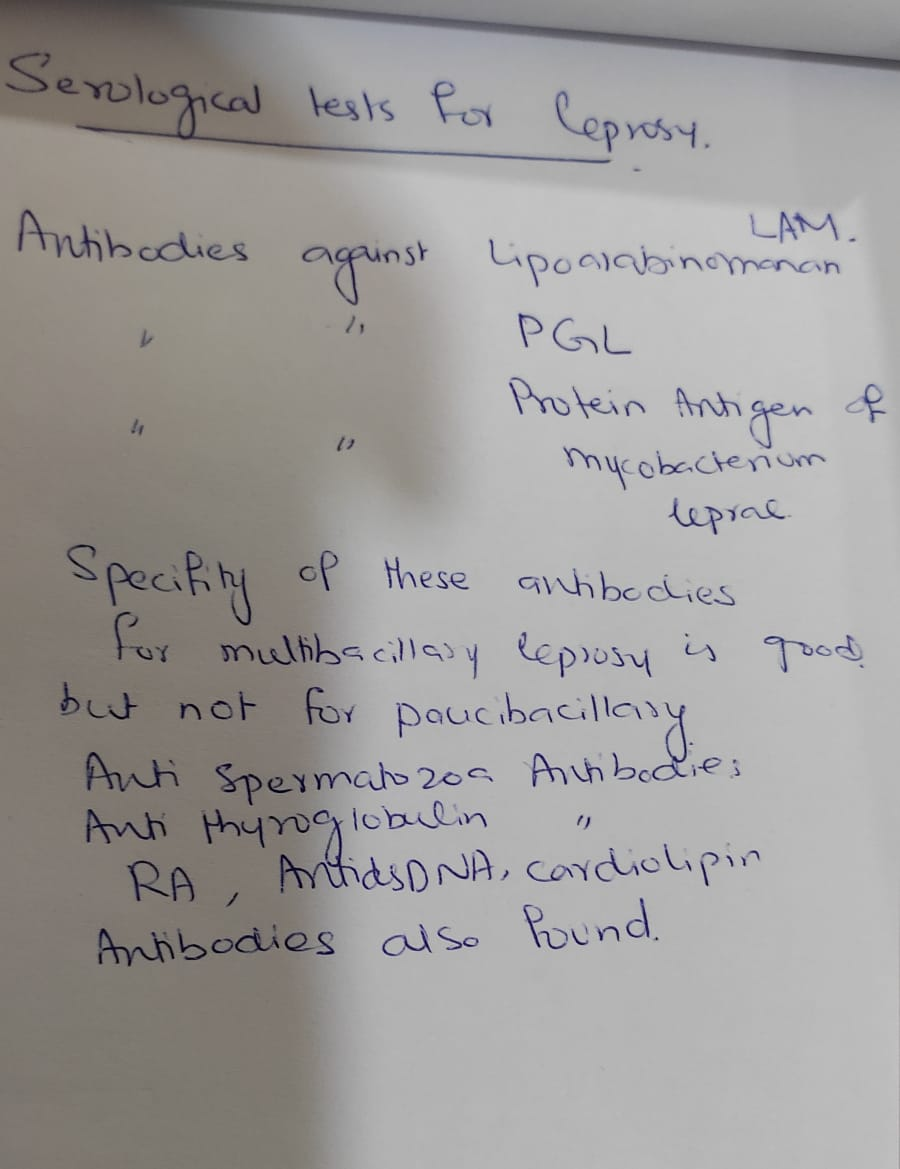 Serological tests for leprosy.
LAM.
Antibodies against Lipoarabinomanan
" " PGL
" " Protein Antigen of
mycobacterium
leprae.
Specifity of these antibodies
for multibacillary leprosy is good
but not for paucibacillary
Anti Spermatozoa Antibodies
Anti thyroglobulin "
RA, AntidsDNA, cardiolipin
Antibodies also found.